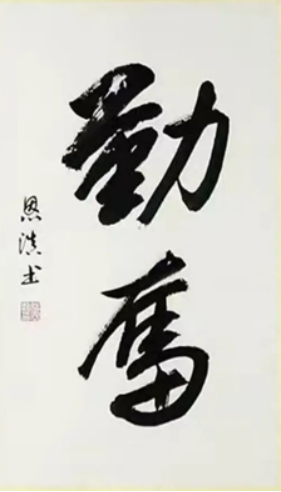 勤奮
恩滇书